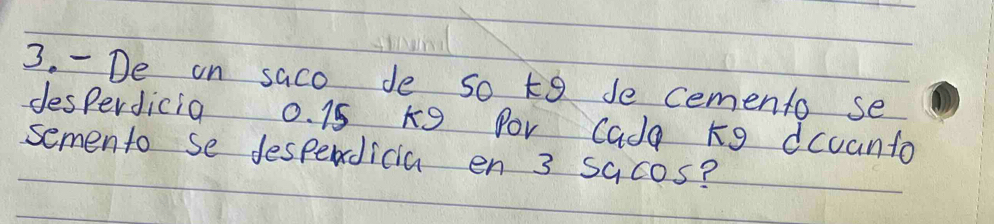 3.- De un saco de 50 kg de cemento se
desperdicia 0.15 kg por cada kg dcuanto
semento se desperdicia en 3 sacos?